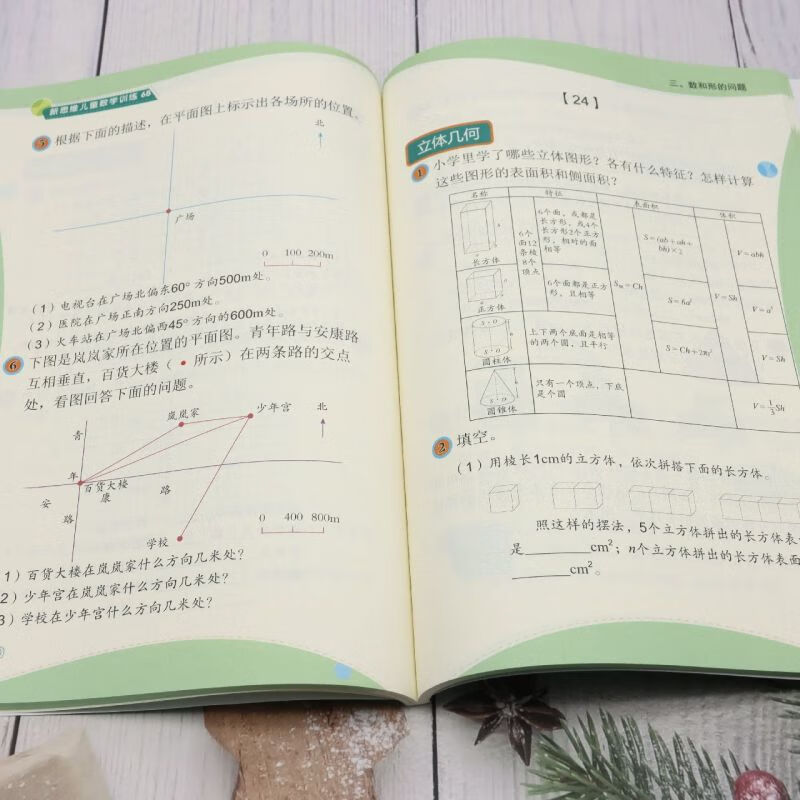 新思维儿童数学训练 6B
5 根据下面的描述，在平面图上标示出各场所的位置。
北
广场
0 100 200m
(1) 电视台在广场北偏东60°方向500m处。
(2) 医院在广场正南方向250m处。
(3) 火车站在广场北偏西45°方向的600m处。
6 下图是岚岚家所在位置的平面图。青年路与安康路
互相垂直，百货大楼（ • 所示）在两条路的交点
处，看图回答下面的问题。
岚岚家
少年宫
北
青
年
百货大楼
安
康
路
路
学校
0 400 800m
1) 百货大楼在岚岚家什么方向几米处？
2) 少年宫在岚岚家什么方向几米处？
3) 学校在少年宫什么方向几米处？
三、数和形的问题
【24】
立体几何
1 小学里学了哪些立体图形？各有什么特征？怎样计算
这些图形的表面积和侧面积？
名称 特征 表面积 体积
长方体
6个面12条棱8个顶点
6个面，或都是长方形，或4个长方形2个正方形，相对的面相等
S=(ab+ah+bh)×2
V=abh
正方体
6个面都是正方形，且相等
S侧=Ch
S=6a²
V=Sh
V=a³
圆柱体
上下两个底面是相等的两个圆，且平行
S=Ch+2πr²
V=Sh
圆锥体
只有一个顶点，下底是个圆
V=1/3Sh
2 填空。
(1) 用棱长1cm的立方体，依次拼搭下面的长方体。
照这样的摆法，5个立方体拼出的长方体表
是______cm²；n个立方体拼出的长方体表面
______cm²。